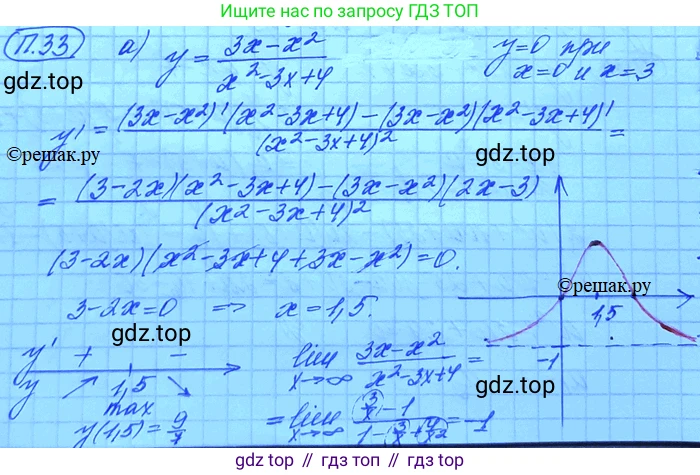 Ищите по запросу ГДЗ ТОП
П.33 а) y = (3x-x²)/(x²-3x+4) y=0 при
x=0 и x=3
gdz.top
gdz.top
y' = ((3x-x²)'(x²-3x+4)-(3x-x²)(x²-3x+4)')/(x²-3x+4)² =
©решак.ру
gdz.top
= ((3-2x)(x²-3x+4)-(3x-x²)(2x-3))/(x²-3x+4)²
(3-2x)(x²-3x+4+3x-x²)=0.
gdz.top
©решак.ру
3-2x=0 => x=1,5.
1,5
gdz.top
y' + -
y 1,5
max
y(1,5)=9/7
lim x→∞ (3x-x²)/(x²-3x+4) =
-1
gdz.top
= lim x→∞ (3/x-1)/(1-3/x+4/x²) = -1
gdz.top // gdz.top // gdz.top // gdz.top // gdz.top